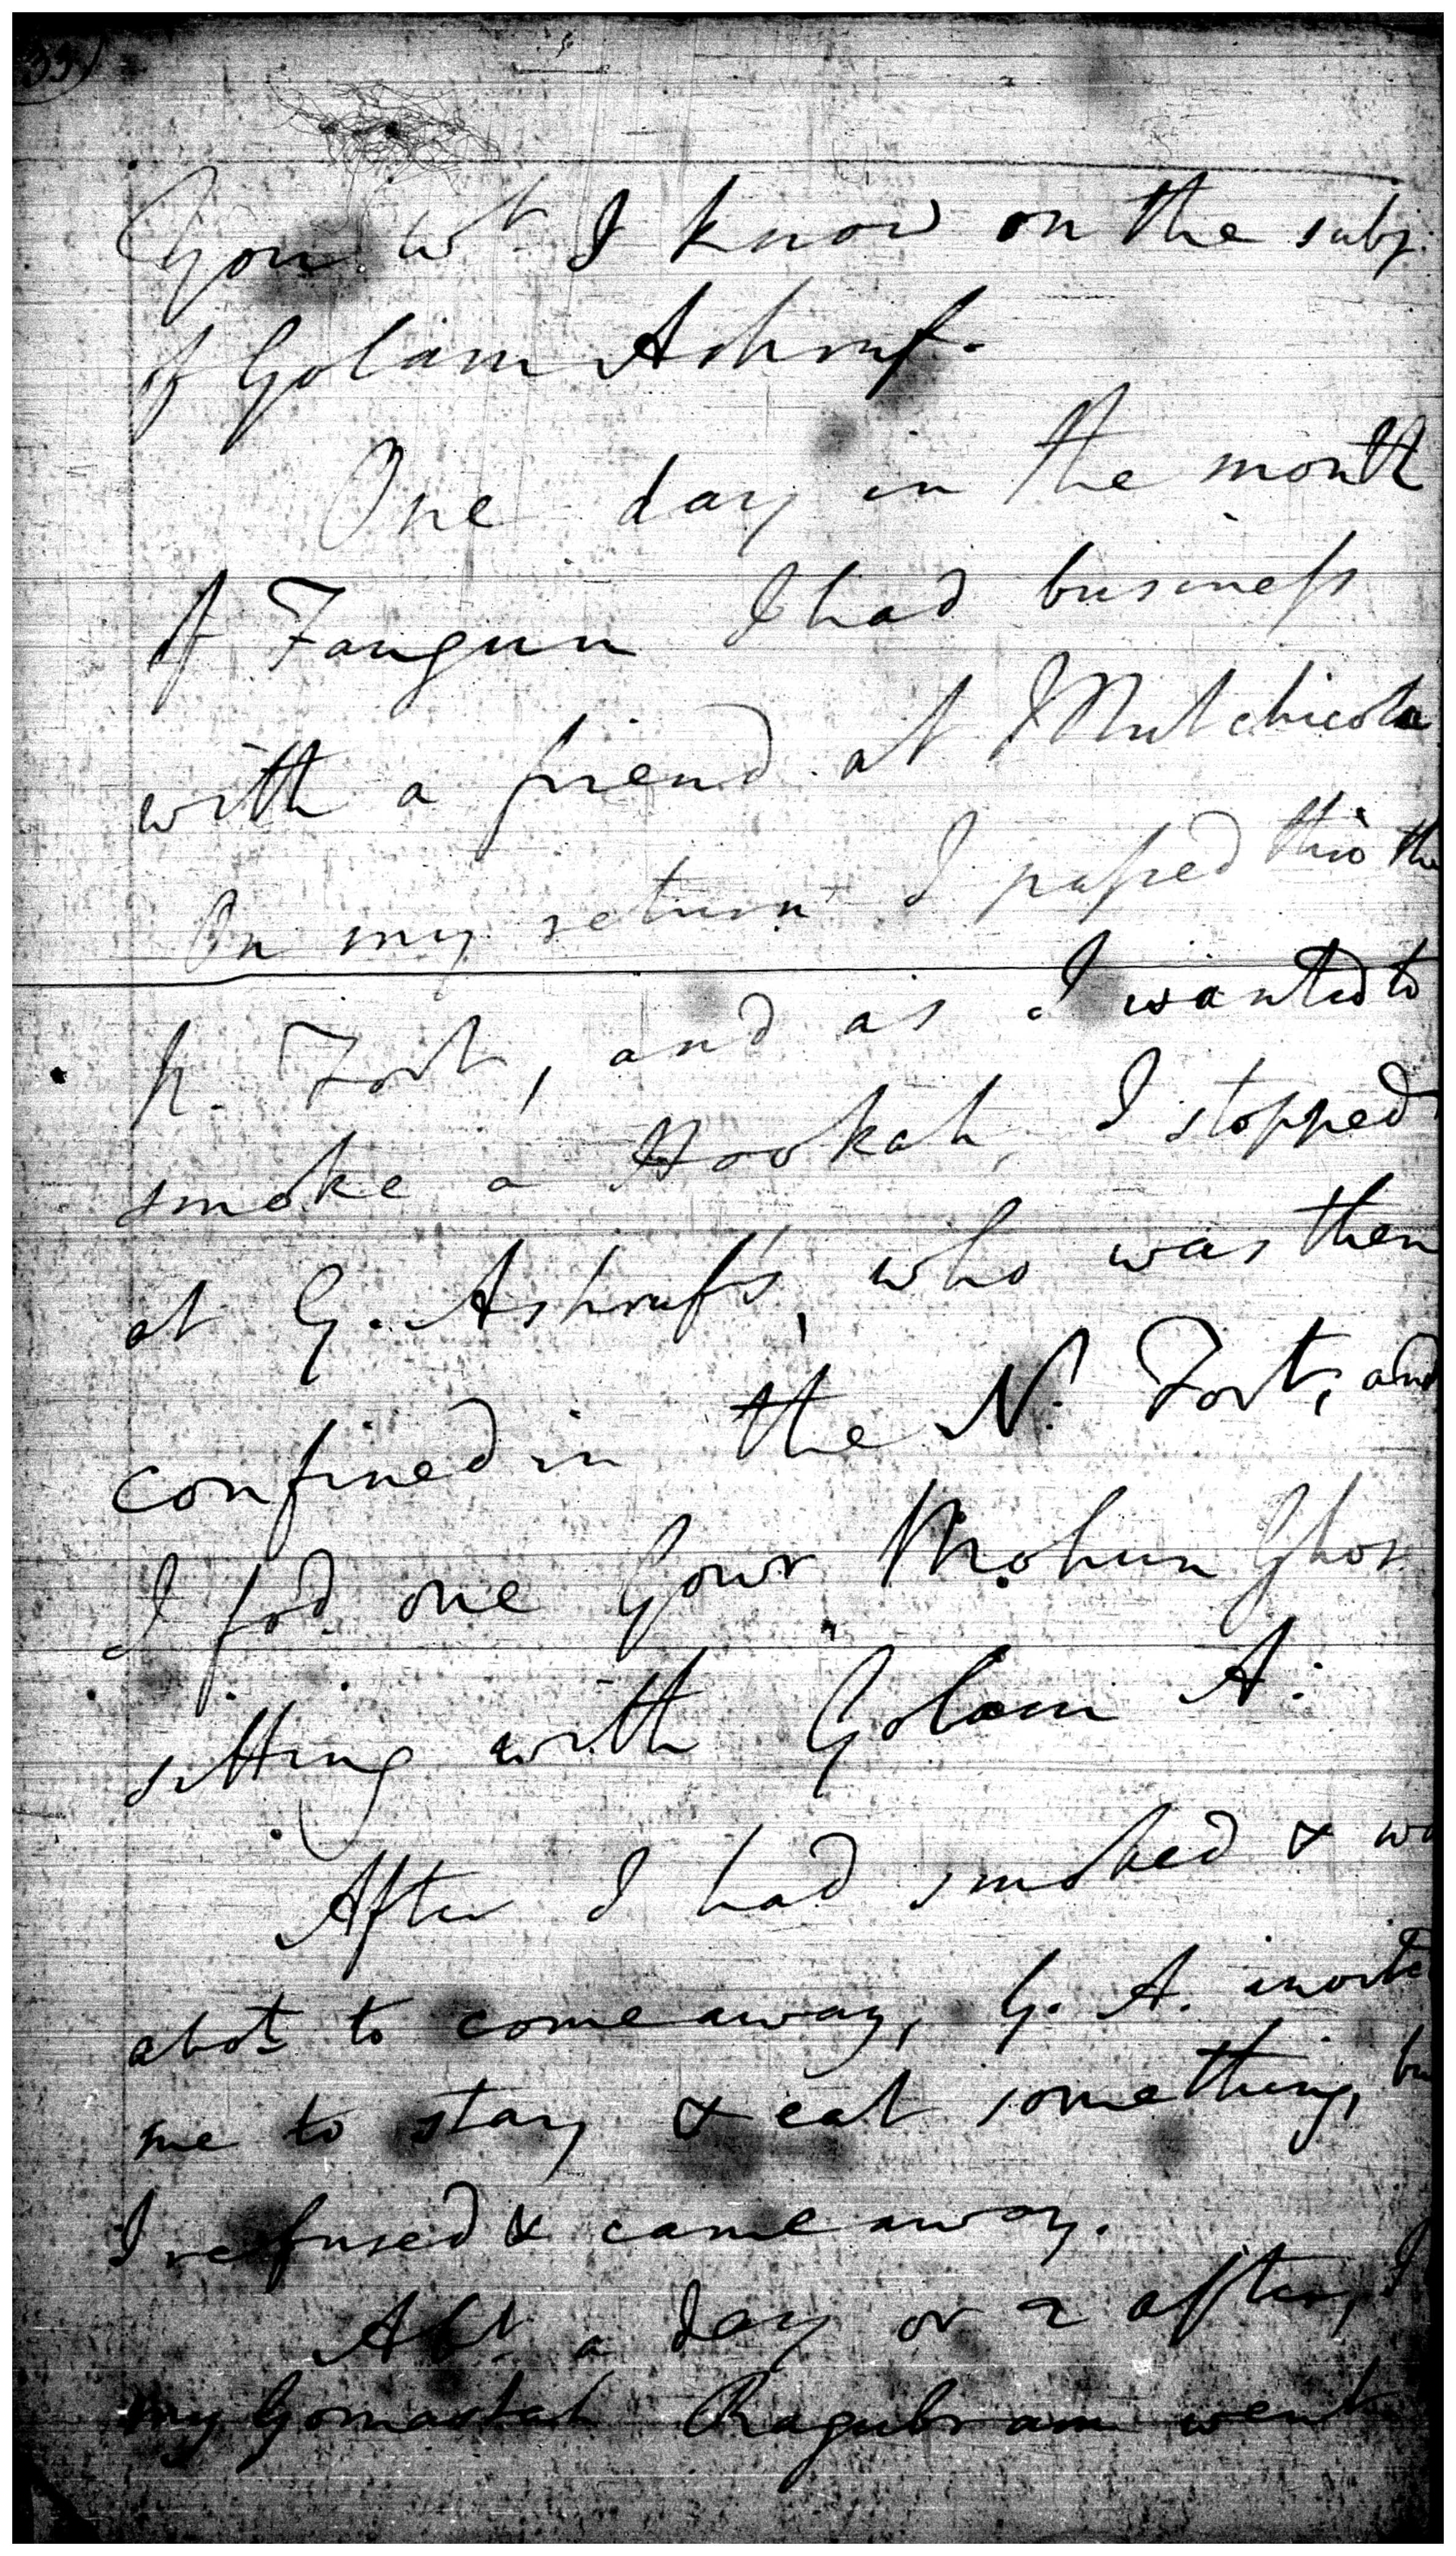 33)
you wt I know on the subj:
of Golam Ashruf.
One day in the month
of Faugun I had business
with a friend at Mutchicola
On my return I passed thro the
N. Fort, and as I wanted to
smoke a Hookah, I stopped
at G. Ashruf's, who was then
confined in the N. Fort, and
I fod. one Gour Mohun Ghos
sitting with Golam A:
After I had smoked & wa
abot to come away, G. A. invite
me to stay & eat something, bu
I refused & came away.
Abt. a day or 2 after, I
my Gomastah Ragubram went